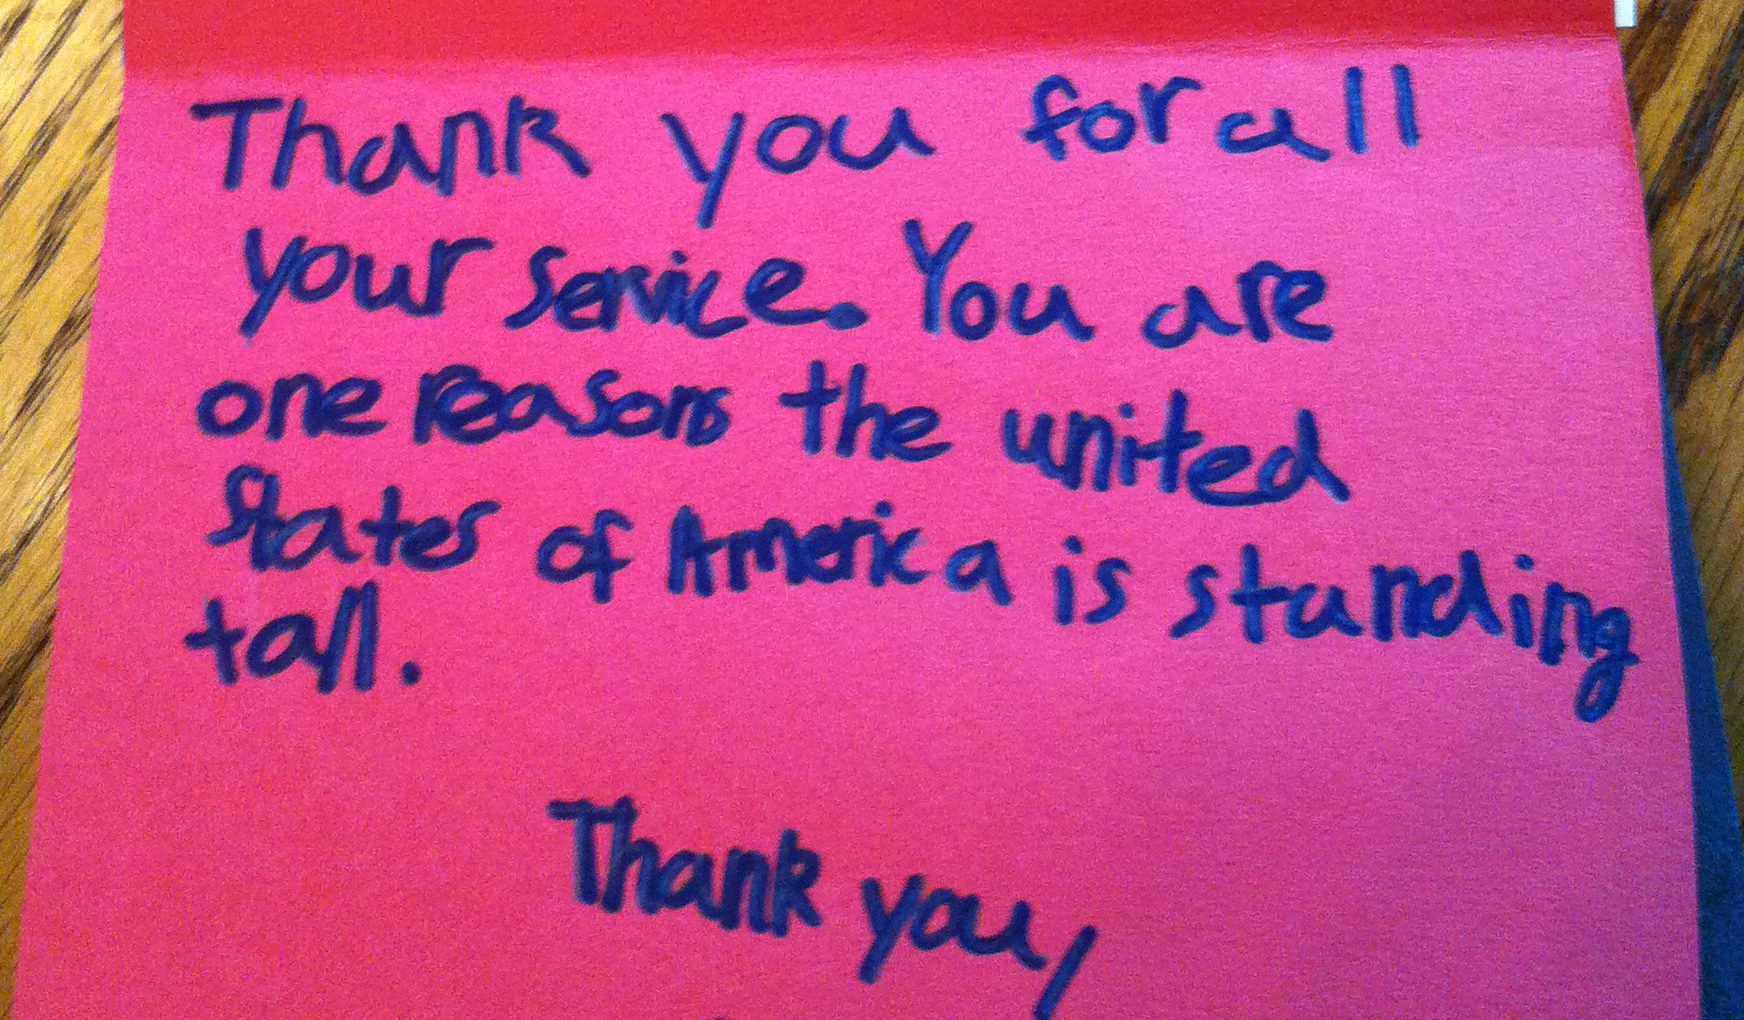 Thank you for all
your service. You are
one reasons the united
States of America is standing
tall.
Thank you,